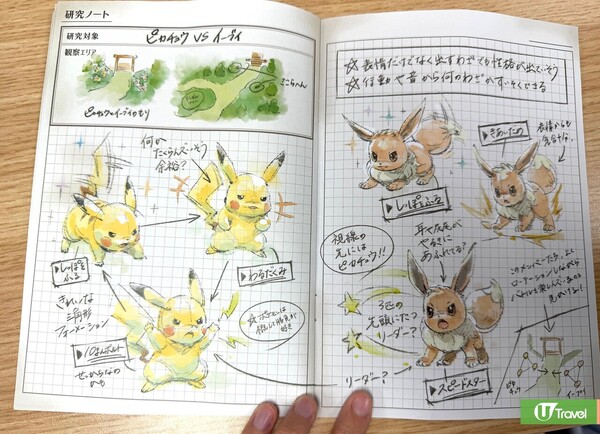 研究ノート
研究対象
ピカチュウ VS イーブイ
観察エリア
ピカチュウとイーブイのもり
ここらへん
何か
たくらんでいそう
余裕?
▶しっぽをふる
▶わるだくみ
きれいな
三角形
フォーメーション
▶10まんボルト
☆表情だけでなく出すわざでも性格が出ていそう
☆行動や音から何のわざかすいそくできる
▶しっぽをふる
▶きあいだめ
表情からも
視線の
先には
ピカチュウ!!
耳や尻尾が
やる気に
あふれてる?
3匹の
先頭にたつ
リーダー?
リーダー?
▶スピードスター
ローテーションしながら
ピカチュウ
イーブイ
U Travel